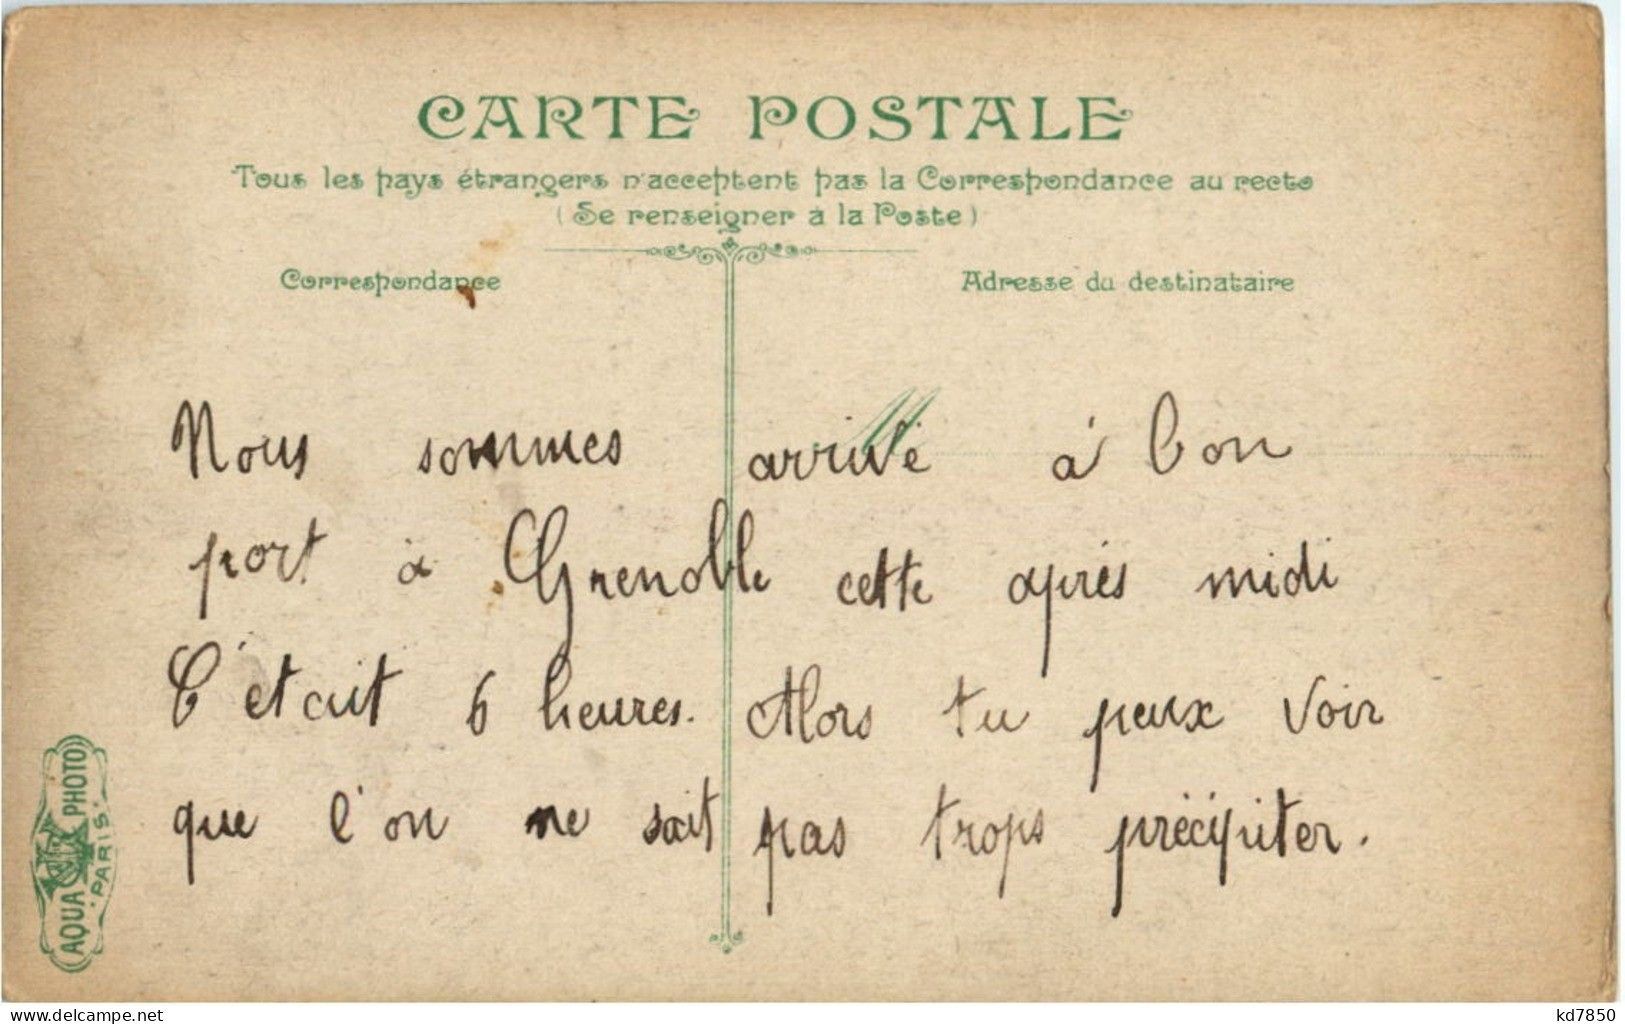 CARTE POSTALE
Tous les pays étrangers n'acceptent pas la Correspondance au recto
(Se renseigner à la Poste)
Correspondance
Adresse du destinataire
Nous sommes arrivé à bon
port à Grenoble cette après midi
C'était 6 heures. Alors tu peux voir
que l'on ne sait pas trops précipiter.
AQUA PHOTO
PARIS
www.delcampe.net
kd7850